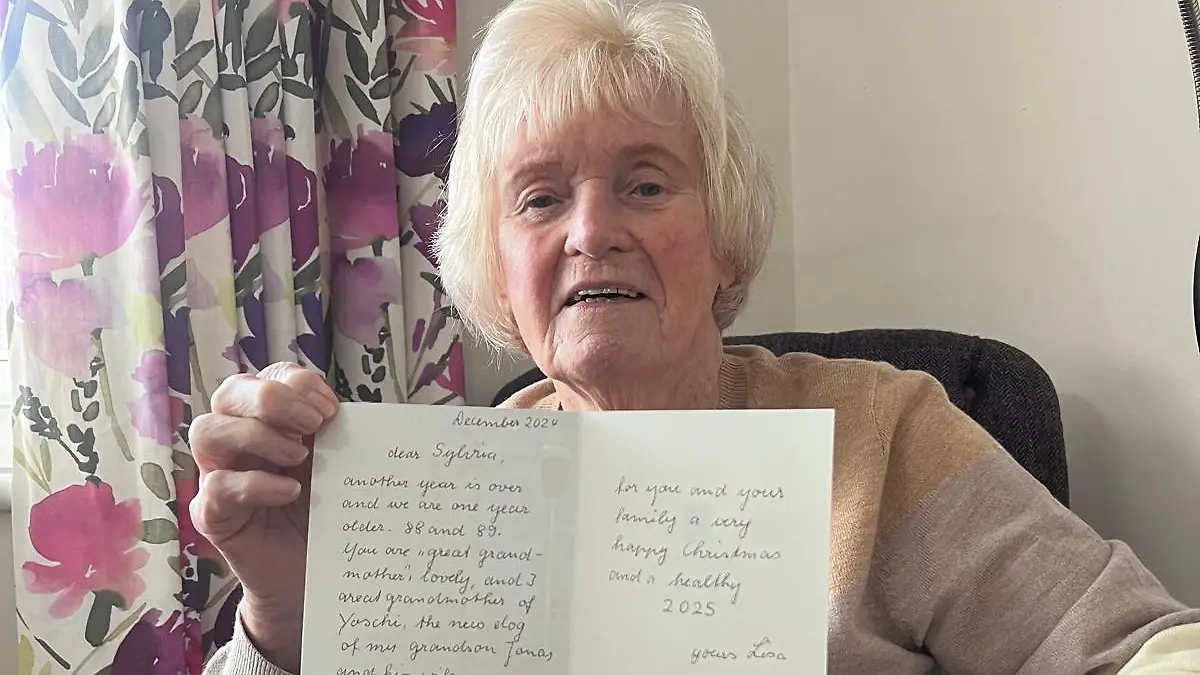 December 2024
dear Sylvia,
another year is over
and we are one year
older. 88 and 89.
You are „great grand-
mother", lovely, and I
great grandmother of
Yoschi, the new dog
of my grandson Jonas
and his wife
for you and your
family a very
happy Christmas
and a healthy
2025
yours Lisa